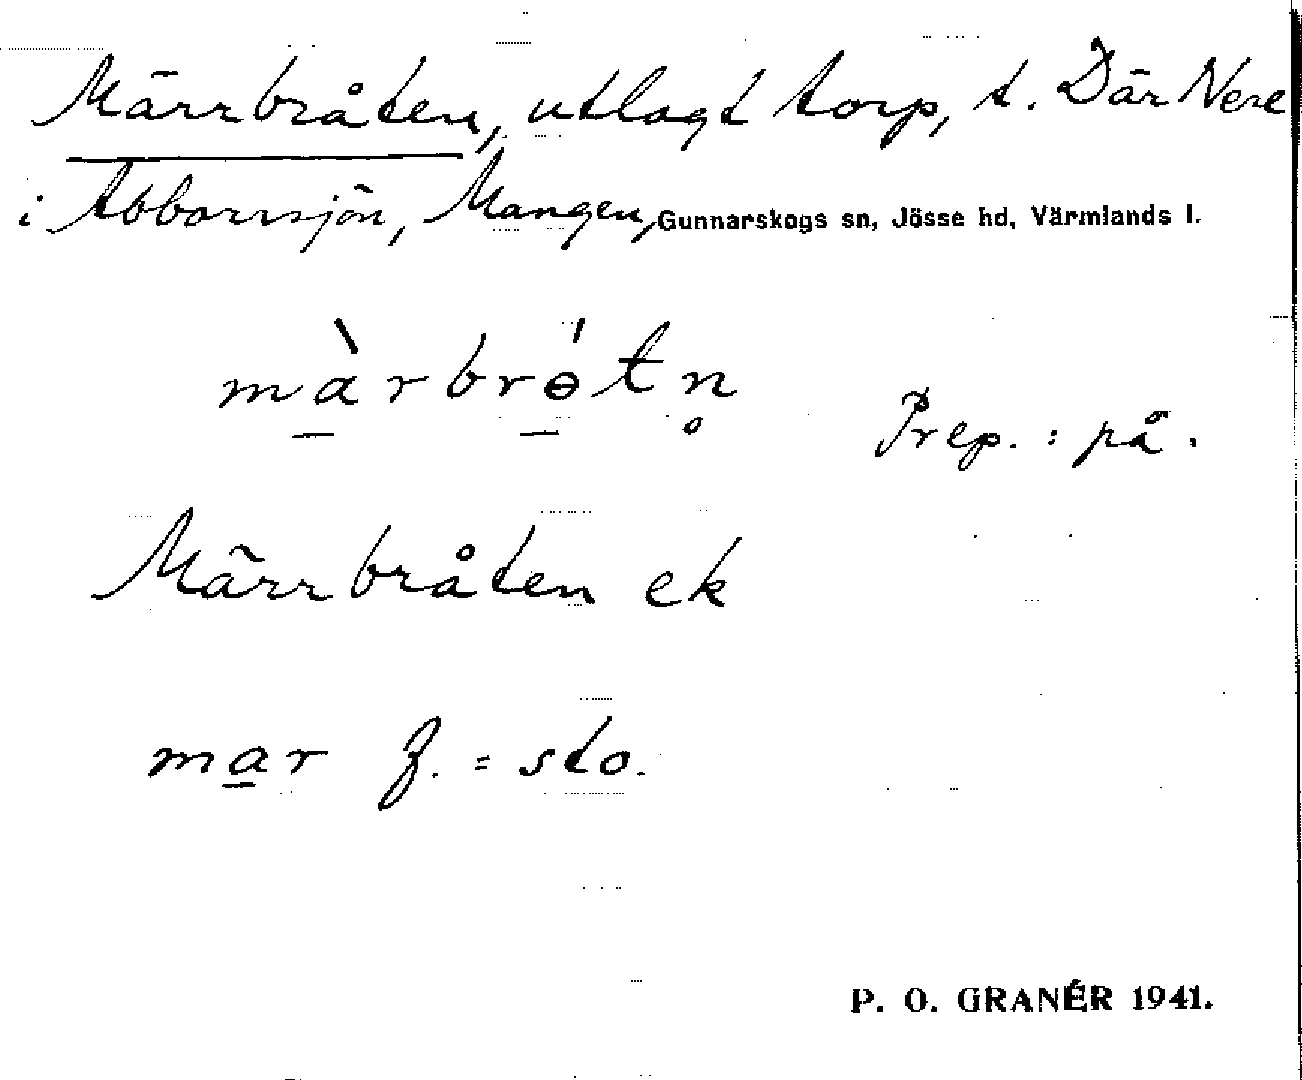 Märrbråten, utlagt torp, t. Där Nere
i Abborrsjön, Mangen, Gunnarskogs sn, Jösse hd, Värmlands l.
mà̱rbrɵ̱́tn̥
Prep. : på.
Märrbråten ek
ma̱r f. = sto.
P. O. GRANÉR 1941.